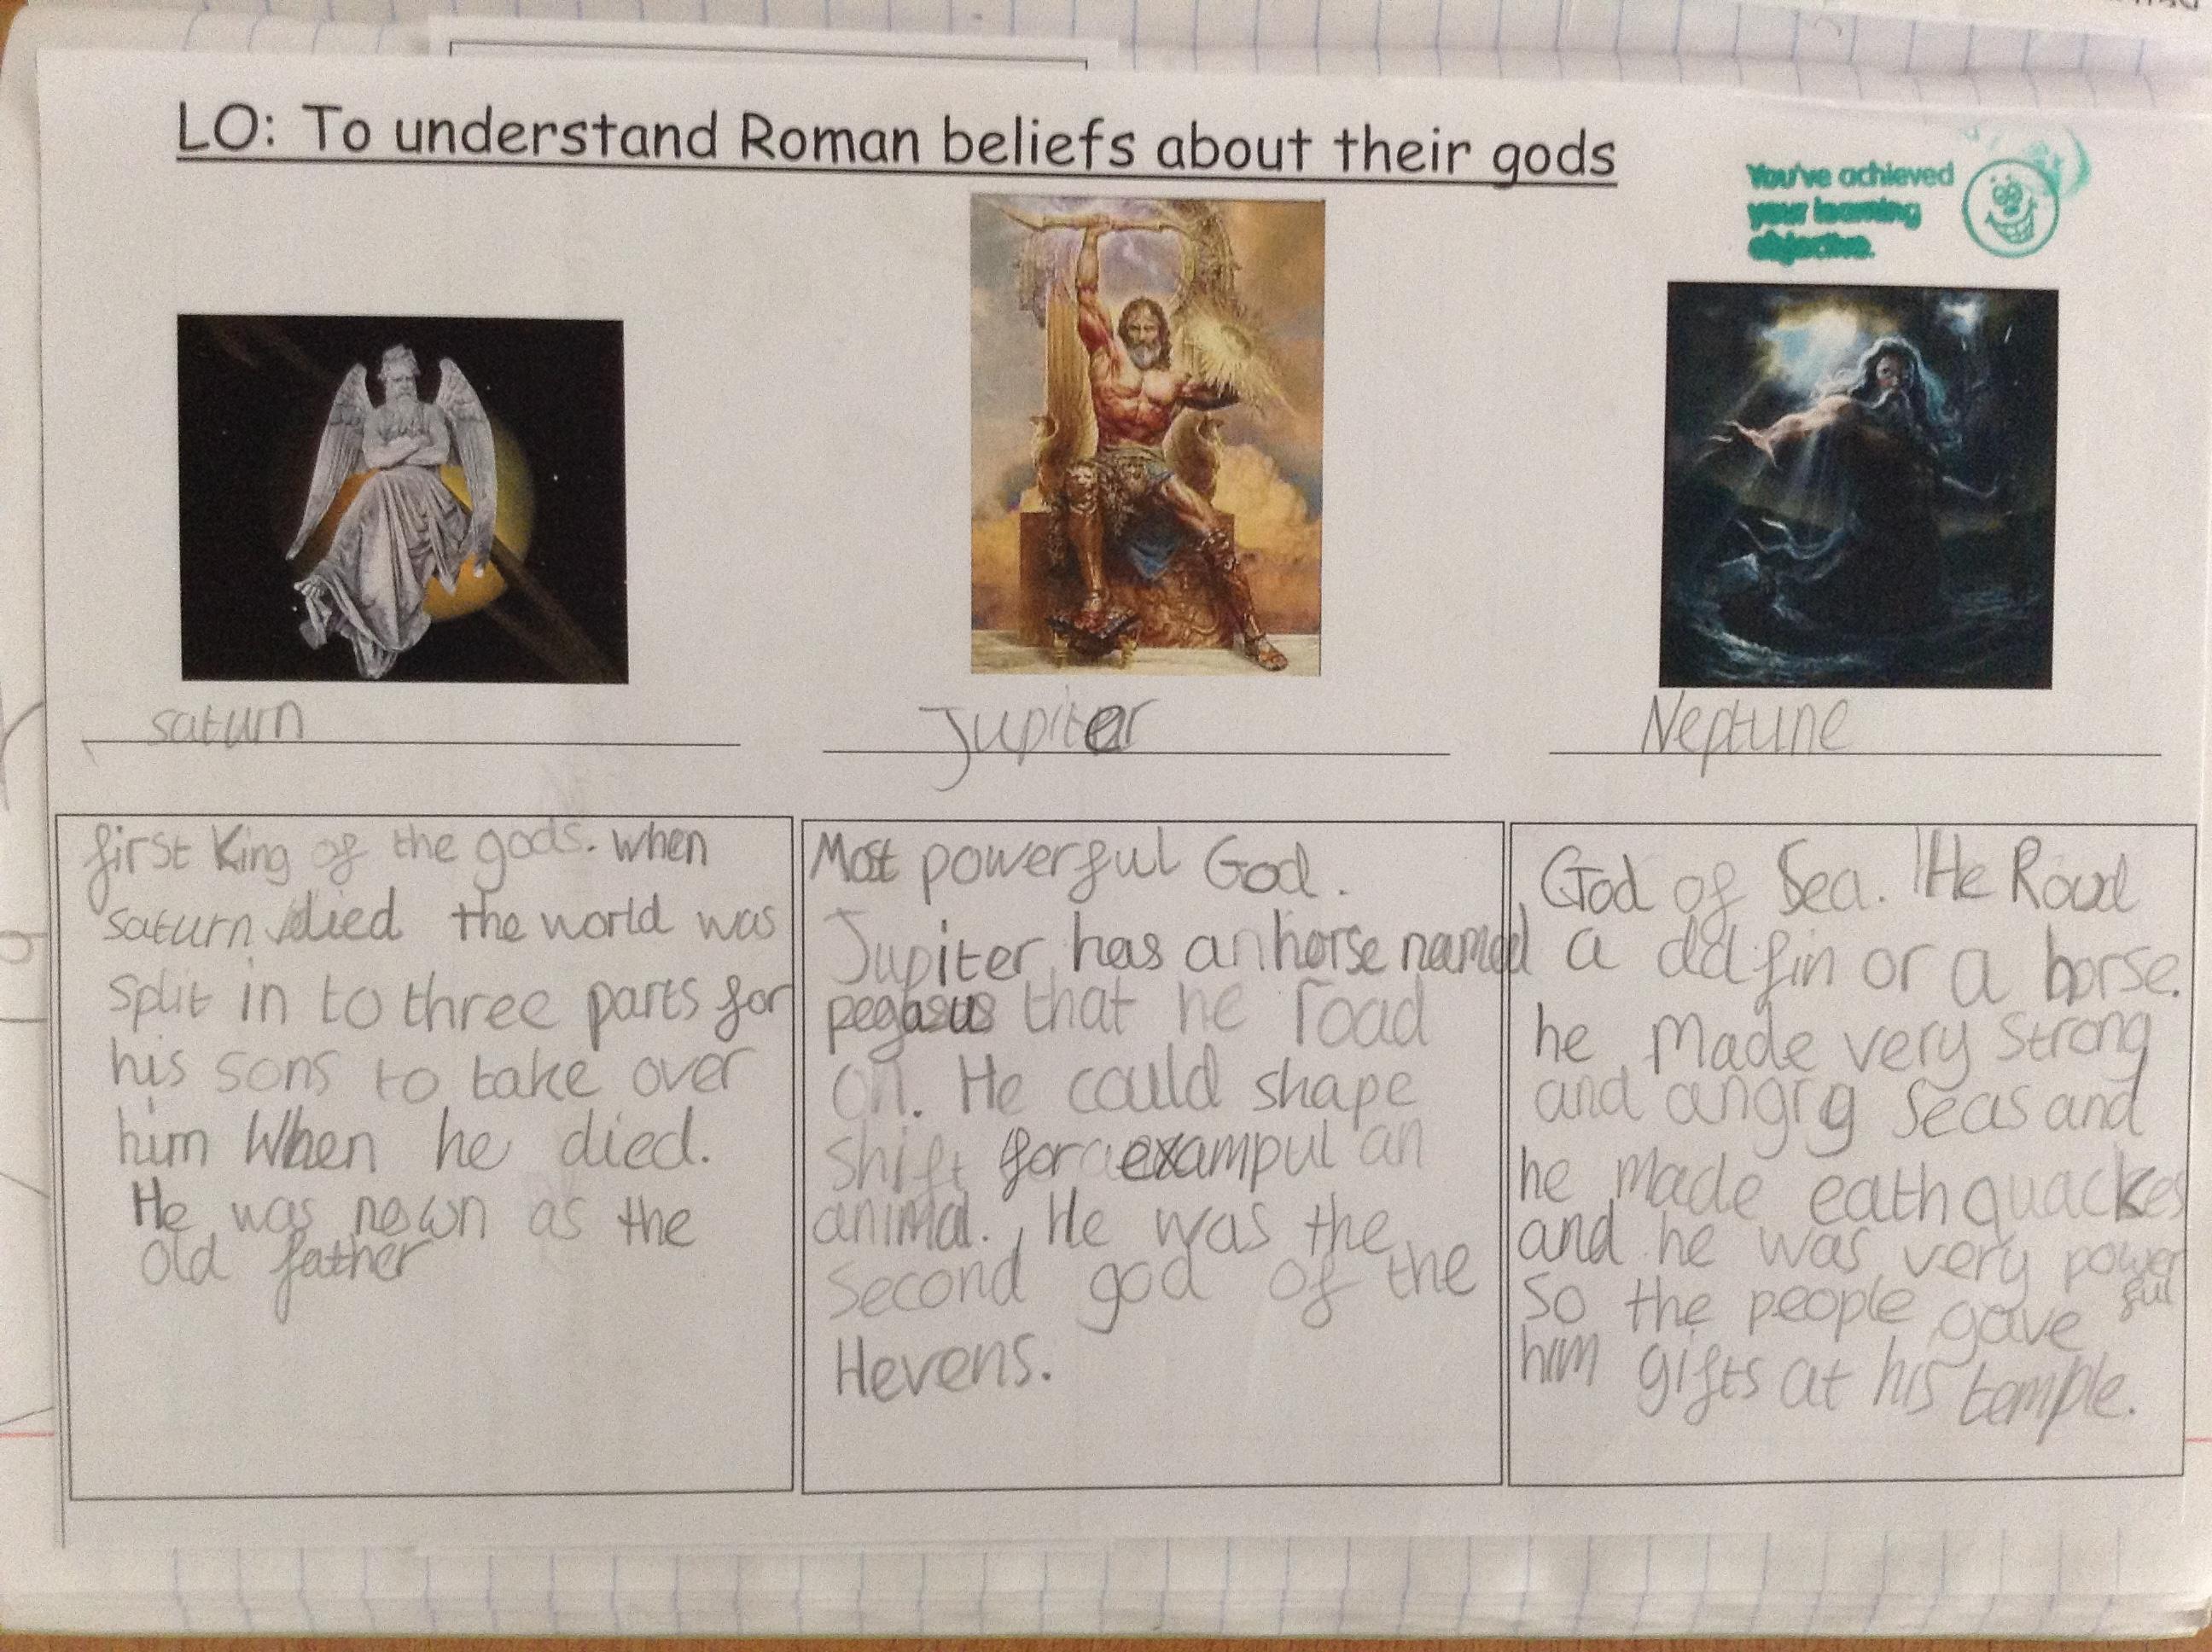 LO: To understand Roman beliefs about their gods
You've achieved
your learning
objective.
saturn
Jupiter
Neptune
first King of the gods. when
saturn died the world was
split in to three parts for
his sons to take over
him When he died.
He was nown as the
old father
Most powerful God.
Jupiter has an horse named
pegasus that he road
on. He could shape
shift for exampul an
animal. He was the
second god of the
Hevens.
God of Sea. He Road
a dolfin or a horse.
he made very strong
and angry seas and
he made eathquackes
and he was very power
ful
so the people gave
him gifts at his temple.